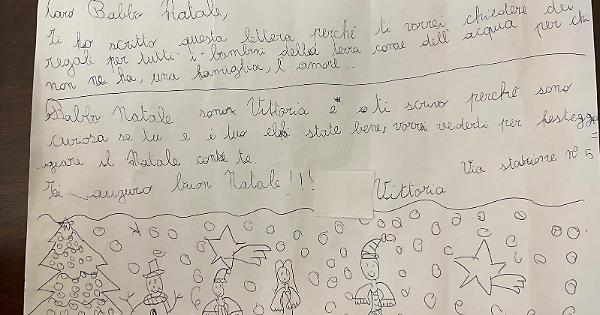 Caro Babbo Natale,
Ti ho scritto questa lettera perché ti vorrei chiedere dei
regali per tutti i bambini della terra come dell'acqua per chi
non ne ha, una famiglia, l'amore...
Babbo Natale sono Vittoria e ti scrivo perché sono
curiosa se tu e i tuo elfi state bene, vorrei vederti per festegg
giare il Natale con te.
Via stazione n° 5
Ti auguro buon Natale!!! Vittoria